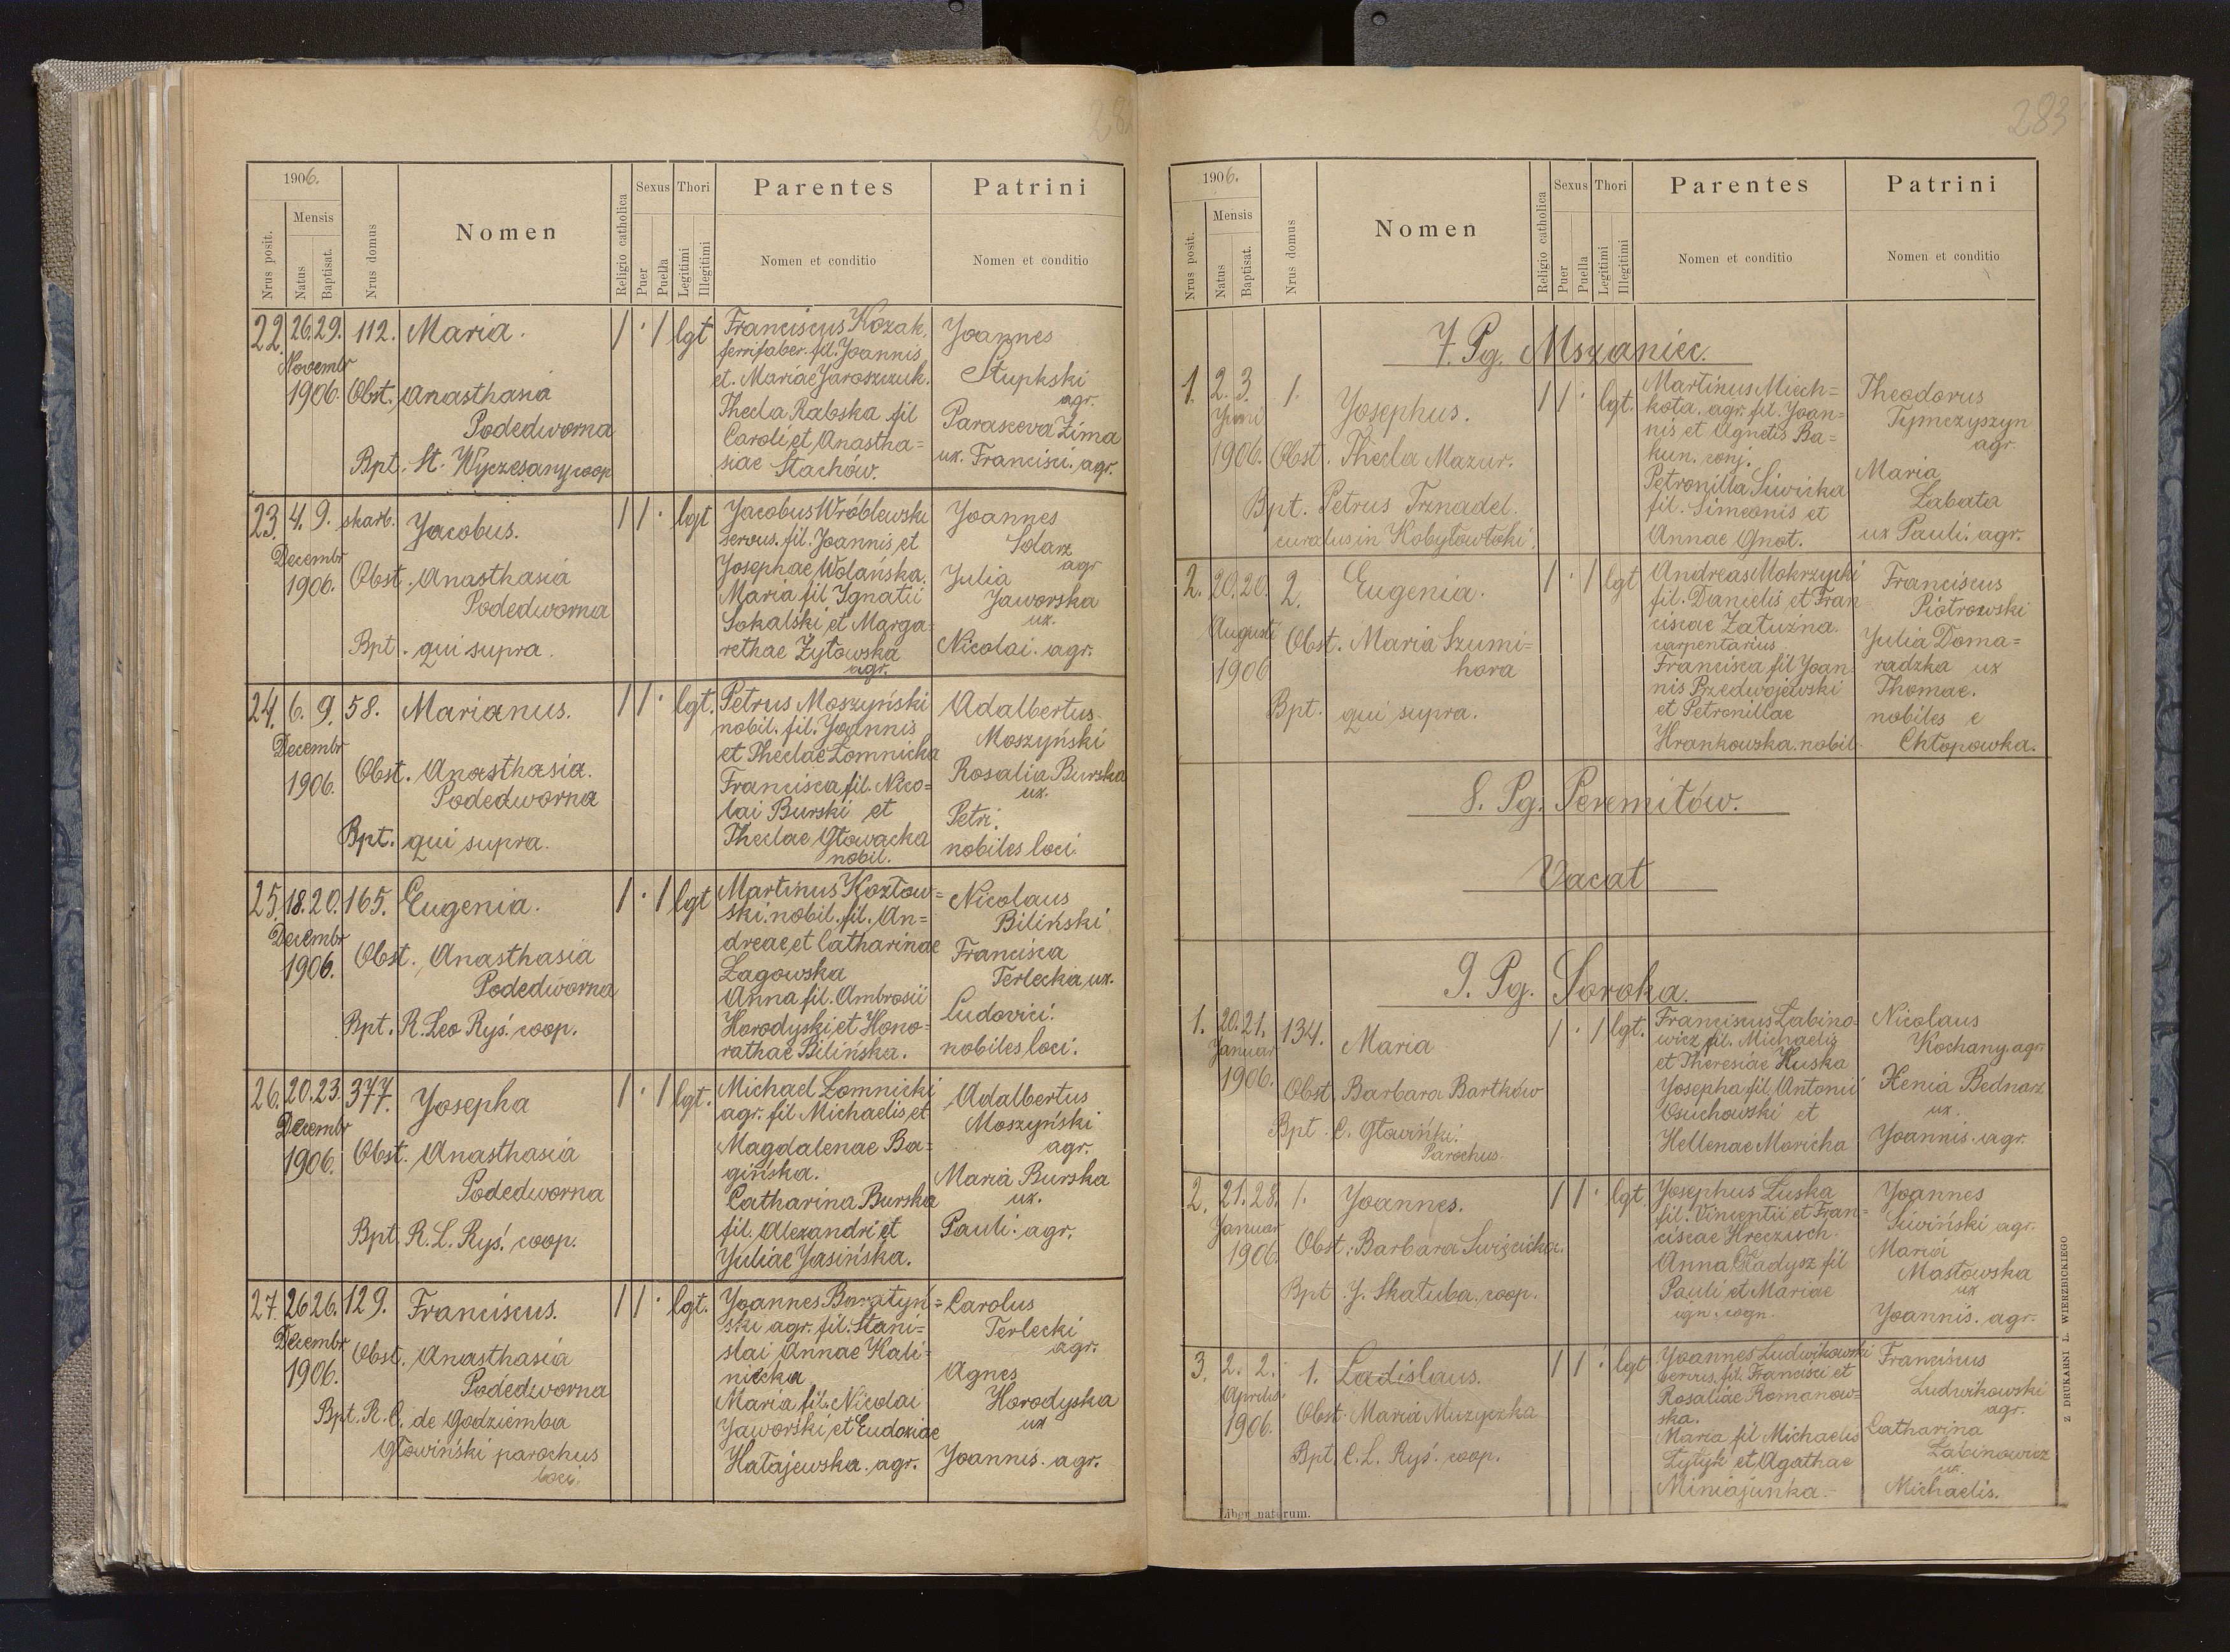 282
1906.
Nrus posit.
Mensis
Natus
Baptisat.
Nrus domus
Nomen
Religio catholica
Sexus
Puer
Puella
Thori
Legitimi
Illegitimi
Parentes
Nomen et conditio
Patrini
Nomen et conditio
22. 26. 29. 112. Maria. / · / lgt
Novembr
1906. Obst. Anasthasia
Podedworna
Bpt. St. Wyczesany coop
Franciscus Kozak,
ferrifaber. fil. Joannis
et. Mariae Jaroszczuk.
Thecla Rabska fil
Caroli et Anastha=
siae Stachów.
Joannes
Słupkski
agr.
Parasceva Zima
ux. Francisci. agr.
23. 4. 9. skarb. Jacobus. / / · lgt
Decembr
1906. Obst. Anasthasia
Podedworna
Bpt. qui supra.
Jacobus Wróblewski
servus. fil. Joannis et
Josephae Wolańska.
Maria fil Ignatii
Sokalski et Marga=
rethae Żytowska
agr.
Joannes
Solarz
agr
Julia
Jaworska
ux.
Nicolai. agr.
24. 6. 9. 58. Marianus. / / · lgt.
Decembr
1906. Obst. Anasthasia.
Podedworna
Bpt. qui supra.
Petrus Moszyński
nobil. fil. Joannis
et Theclae Łomnicka
Francisca fil. Nico=
lai Burski et
Theclae Głowacka
nobil.
Adalbertus
Moszyński
Rosalia Burska
ux.
Petri.
nobiles loci.
25. 18. 20. 165. Eugenia. / · / lgt
Decembr
1906. Obst. Anasthasia
Podedworna
Bpt. R. Leo Ryś. coop.
Martinus Kozłow=
ski. nobil. fil. An=
dreae et Catharinae
Łagowska
Anna fil. Ambrosii
Horodyski et Hono=
rathae Bilińska.
Nicolaus
Biliński
Francisca
Terlecka ux.
Ludovici.
nobiles loci.
26. 20. 23. 377. Josepha / · / lgt.
Decembr
1906. Obst. Anasthasia
Podedworna
Bpt. R. L. Ryś. coop.
Michael Łomnicki
agr. fil Michaelis et
Magdalenae Ba=
gińska.
Catharina Burska
fil. Alexandri et
Juliae Jasińska.
Adalbertus
Moszyński
agr.
Maria Burska
ux.
Pauli. agr.
27. 26 26. 129. Franciscus. / / · lgt.
Decembr
1906. Obst. Anasthasia
Podedworna
Bpt. R. C. de Godziemba
Głowiński parochus
loci.
Joannes Baratyń=
ski agr. fil. Stani=
slai Annae Kali=
niecka
Maria fil. Nicolai
Jaworski et Eudoxiae
Hałajewska. agr.
Carolus
Terlecki
agr.
Agnes
Horodyska
ux
Joannis. agr.
283
1906.
Nrus posit.
Mensis
Natus
Baptisat.
Nrus domus
Nomen
Religio catholica
Sexus
Puer
Puella
Thori
Legitimi
Illegitimi
Parentes
Nomen et conditio
Patrini
Nomen et conditio
7. Pg. Mszaniec.
1. 2. 3. 1. Josephus. / / · lgt.
Juni
1906. Obst. Thecla Mazur.
Bpt. Petrus Trznadel.
curatus in Kobyłowłoki.
Martinus Miech=
kota. agr. fil. Joan=
nis et Agnetis Ba=
kun. conj.
Petronilla Siwicka
fil. Simeonis et
Annae Gnot.
Theodorus
Tymczyszyn
agr
Maria
Łabata
ux Pauli. agr.
2. 20. 20. 2. Eugenia. / · / lgt
Augusti
1906 Obst. Maria Szumi=
hora
Bpt. qui supra.
Andreas Mokrzycki
fil. Danielis et Fran
ciscae Załużna.
carpentarius
Francisca fil Joan
nis Przedwojewski
et Petronillae
Hrankowska. nobil.
Franciscus
Piotrowski
Julia Doma=
radzka ux
Thomae.
nobiles e
Chłopówka.
8. Pg. Peremiłów.
Vacat
9. Pg. Soroka.
1. 20. 21. 134. Maria / · / lgt.
Januar
1906. Obst. Barbara Bartków
Bpt. C. Głowiński.
Parochus.
Franciscus Łabino=
wicz fil. Michaelis
et Theresiae Huska
Josepha fil. Antonii
Osuchowski et
Hellenae Maricha
Nicolaus
Kochany. agr.
Xenia Bednarz
ux.
Joannis. agr.
2. 21. 28. 1. Joannes. / / · lgt
Januar
1906. Obst. Barbara Swięcicka.
Bpt J. Skałuba. coop.
Josephus Łuska
fil. Vincentii et Fran=
ciscae Hreczuch.
Anna Gładysz fil
Pauli et Mariae
ign. cogn.
Joannes
Siwiński agr.
Maria
Masłowska
ux
Joannis. agr.
3. 2. 2. 1. Ladislaus. / / · lgt
Aprilis
1906. Obst. Maria Muzyczka
Bpt. C. L. Ryś. coop.
Joannes Ludwikowski
fil. Francisci et
Rosaliae Romanow=
ska.
Maria fil Michaelis
Łytyk et Agathae
Miniajunka.
Franciscus
Ludwikowski
agr.
Catharina
Łabinowicz
ux.
Michaelis.
Liber natorum.
Z DRUKARNI L. WIERZBICKIEGO